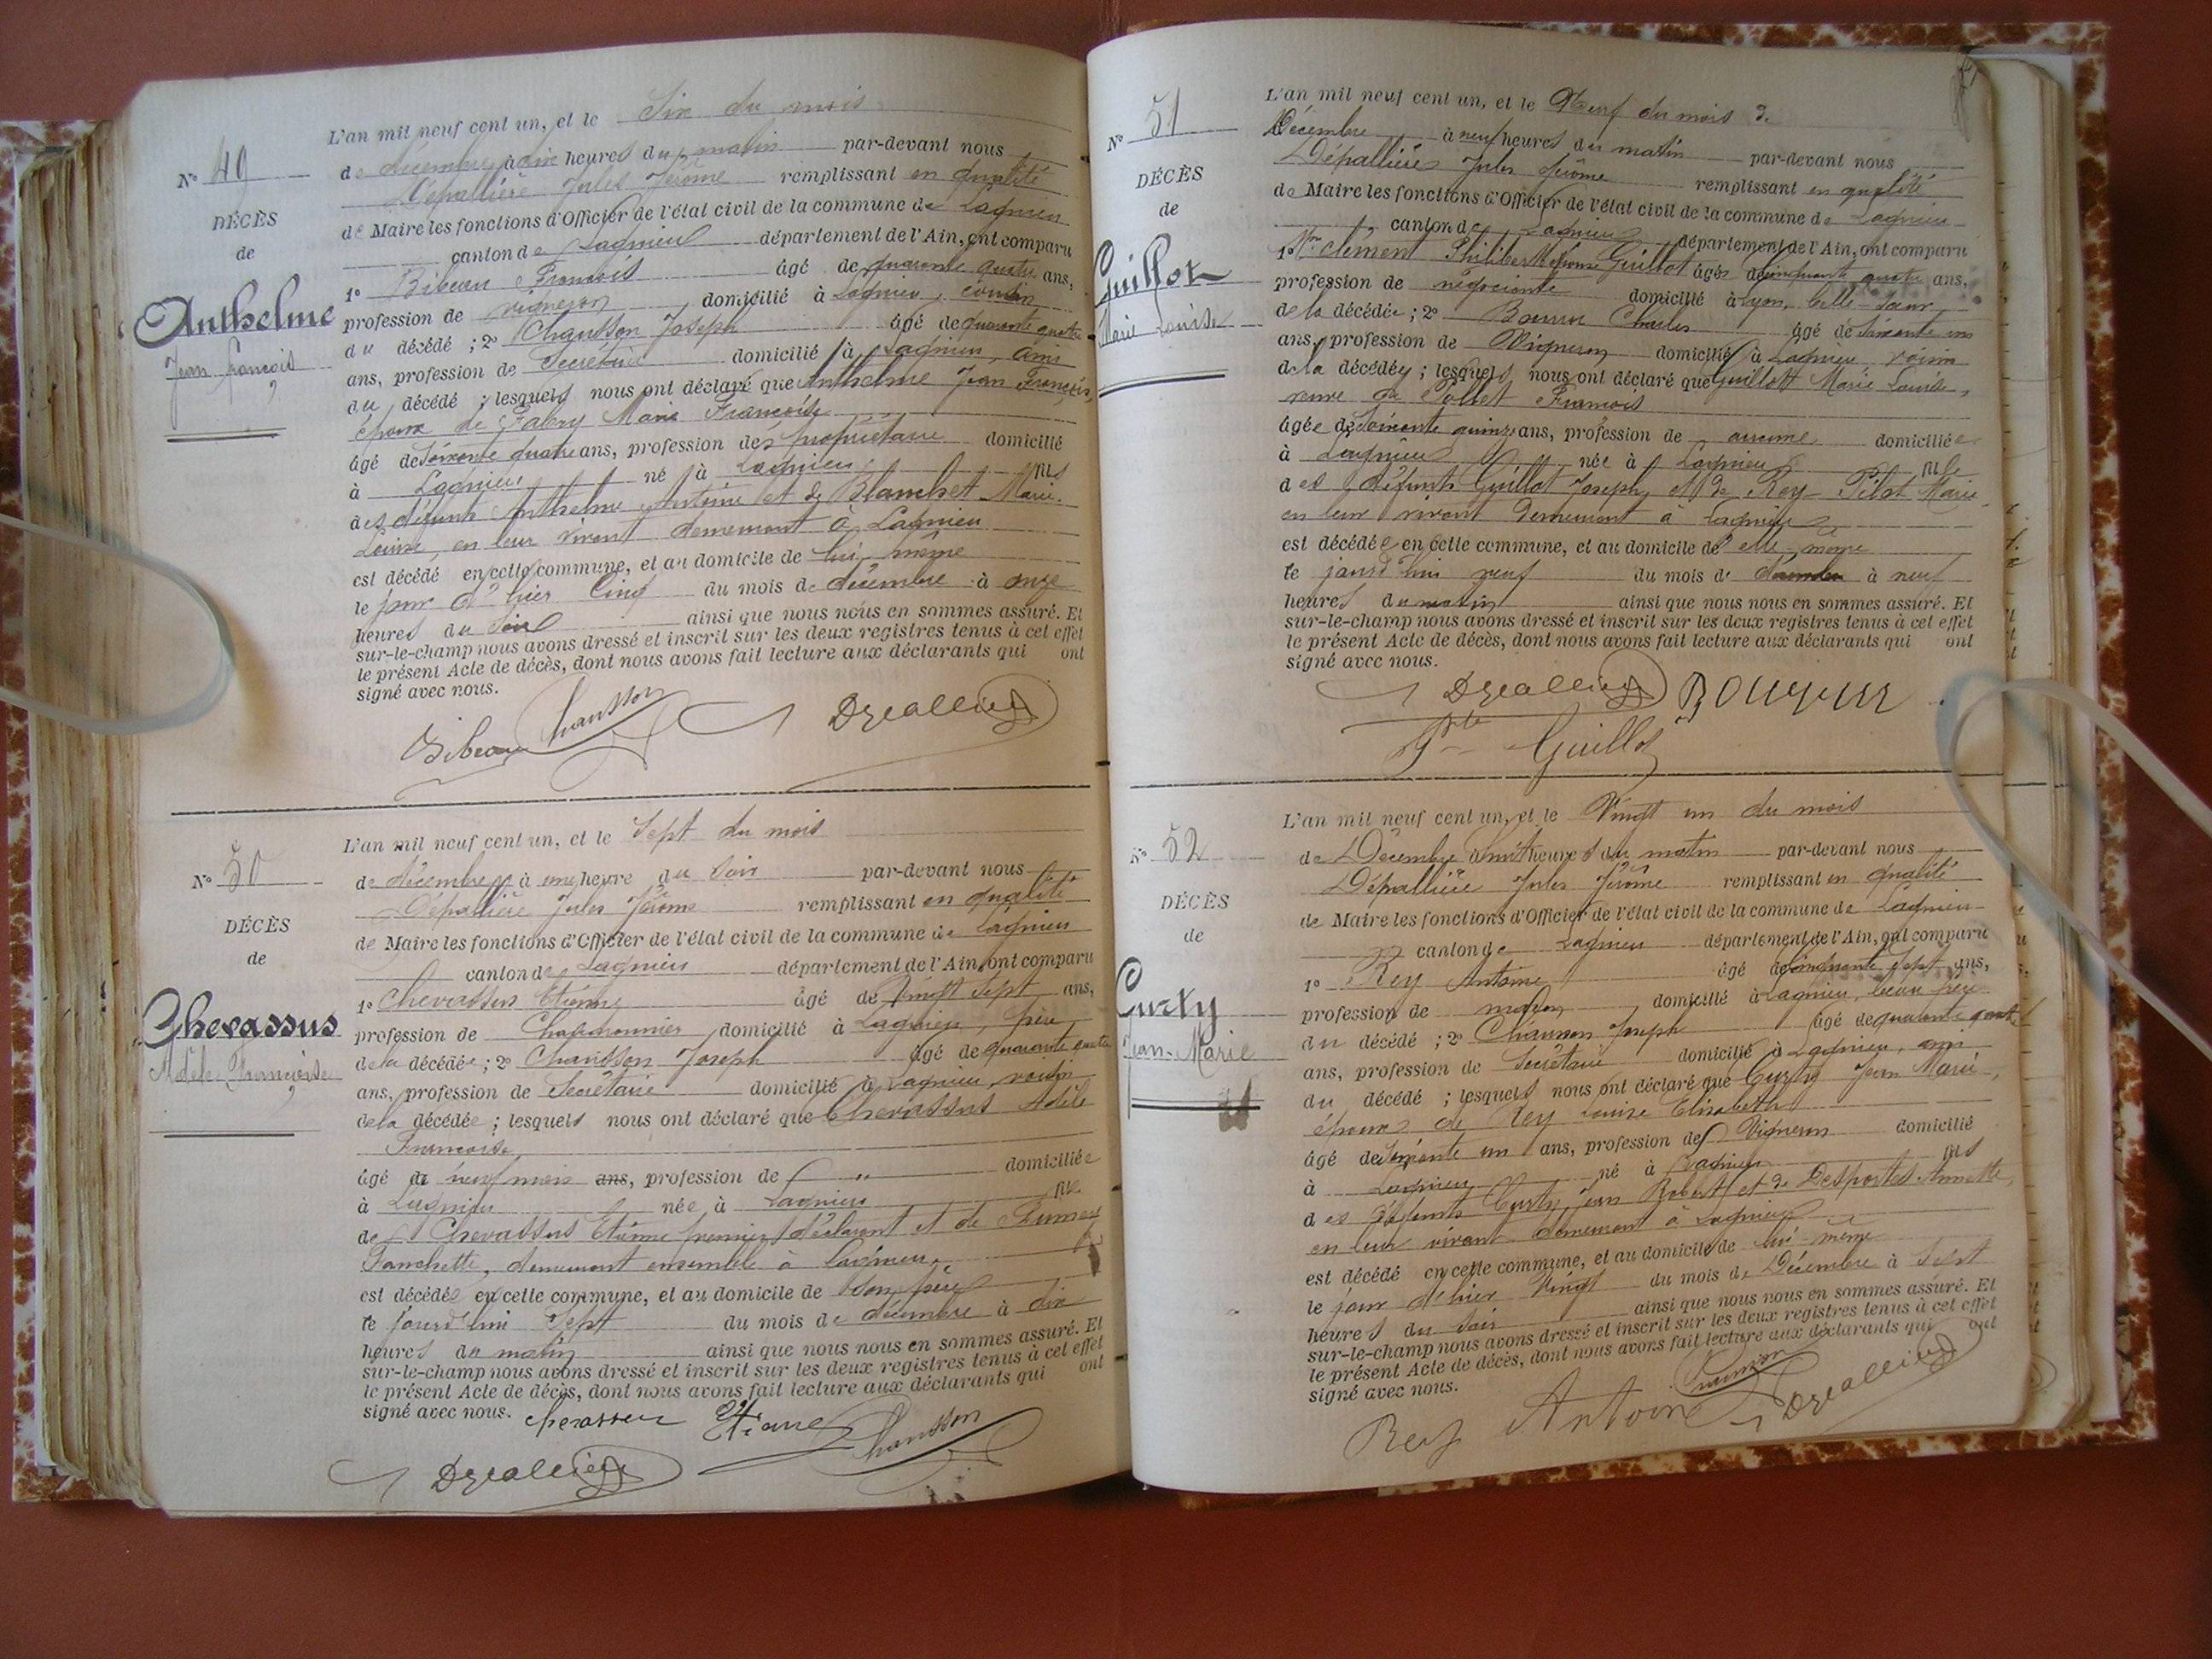 N° 49
DÉCÈS
de
Anthelme
Jean François
L'an mil neuf cent un, et le Six du mois
de décembre à dix heures du matin par-devant nous
Dépallière Jules Jérôme remplissant en qualité
de Maire les fonctions d'Officier de l'état civil de la commune de Lagnieu
canton de Lagnieu département de l'Ain, ont comparu
1° Bibeau François âgé de quarante quatre ans,
profession de vigneron, domicilié à Lagnieu, cousin
du décédé ; 2° Chausson Joseph âgé de quarante quatre
ans, profession de Secrétaire domicilié à Lagnieu, ami
du décédé ; lesquels nous ont déclaré que Anthelme Jean François,
époux de Fabry Marie Françoise
âgé de soixante quatre ans, profession de propriétaire domicilié
à Lagnieu né à Lagnieu, fils
des défunts Anthelme Antoine et de Blanchet Marie
Louise, en leur vivant demeurant à Lagnieu
est décédé en cette commune, et au domicile de lui même
le jour d'hier Cinq du mois de décembre à onze
heures du soir ainsi que nous nous en sommes assuré. Et
sur-le-champ nous avons dressé et inscrit sur les deux registres tenus à cet effet
le présent Acte de décès, dont nous avons fait lecture aux déclarants qui ont
signé avec nous.
Bibeau Chausson Dépallière
N° 50
DÉCÈS
de
Chevassus
Adèle Françoise
L'an mil neuf cent un, et le Sept du mois
de décembre à une heure du soir par-devant nous
Dépallière Jules Jérôme remplissant en qualité
de Maire les fonctions d'Officier de l'état civil de la commune de Lagnieu
canton de Lagnieu département de l'Ain, ont comparu
1° Chevassus Etienne âgé de Vingt Sept ans,
profession de domicilié à Lagnieu, père
de la décédée ; 2° Chausson Joseph âgé de quarante quatre
ans, profession de Secrétaire domicilié à Lagnieu, voisin
de la décédée ; lesquels nous ont déclaré que Chevassus Adèle
Françoise
âgé de neuf mois ans, profession de " domiciliée
à Lagnieu née à Lagnieu fille
de Chevassus Etienne premier déclarant et de
Fanchette, demeurant ensemble à Lagnieu.
est décédée en cette commune, et au domicile de son père
le jourd'hui Sept du mois de décembre à dix
heures du matin ainsi que nous nous en sommes assuré. Et
sur-le-champ nous avons dressé et inscrit sur les deux registres tenus à cet effet
le présent Acte de décès, dont nous avons fait lecture aux déclarants qui ont
signé avec nous. Chevassus Etienne Chausson
Dépallière
N° 51
DÉCÈS
de
Guillot
Marie Louise
L'an mil neuf cent un, et le Neuf du mois de
Décembre à neuf heures du matin par-devant nous
Dépallière Jules Jérôme remplissant en qualité
de Maire les fonctions d'Officier de l'état civil de la commune de Lagnieu
canton de Lagnieu département de l'Ain, ont comparu
1° Clément Philiberte Guillot âgés de cinquante quatre ans,
profession de négociante domicilié à Lyon, belle-sœur
de la décédée ; 2° Charles âgé de soixante un
ans, profession de Vigneron domicilié à Lagnieu voisin
de la décédée ; lesquels nous ont déclaré que Guillot Marie Louise,
veuve de François
âgée de soixante quinze ans, profession de aucune domiciliée
à Lagnieu née à Lagnieu fille
des défunts Guillot Joseph et de Rey-Pilot Marie
en leur vivant demeurant à Lagnieu
est décédée en cette commune, et au domicile de elle même
le jourd'hui neuf du mois de décembre à neuf
heures du matin ainsi que nous nous en sommes assuré. Et
sur-le-champ nous avons dressé et inscrit sur les deux registres tenus à cet effet
le présent Acte de décès, dont nous avons fait lecture aux déclarants qui ont
signé avec nous.
Dépallière
Guillot
N° 52
DÉCÈS
de
Curty
Jean-Marie
L'an mil neuf cent un, et le Vingt un du mois
de Décembre à huit heures du matin par-devant nous
Dépallière Jules Jérôme remplissant en qualité
de Maire les fonctions d'Officier de l'état civil de la commune de Lagnieu
canton de Lagnieu département de l'Ain, ont comparu
1° Rey Antoine âgé de cinquante sept ans,
profession de maçon domicilié à Lagnieu, beau frère
du décédé ; 2° Chausson Joseph âgé de quarante quatre
ans, profession de Secrétaire domicilié à Lagnieu, ami
du décédé ; lesquels nous ont déclaré que Curty Jean Marie,
époux de Rey Louise Elisabeth
âgé de soixante un ans, profession de Vigneron domicilié
à Lagnieu né à Lagnieu fils
des défunts Curty Jean Robert et de Desportes Annette,
en leur vivant demeurant à Lagnieu
est décédé en cette commune, et au domicile de lui-même
le jour d'hier Vingt du mois de Décembre à Sept
heures du soir ainsi que nous nous en sommes assuré. Et
sur-le-champ nous avons dressé et inscrit sur les deux registres tenus à cet effet
le présent Acte de décès, dont nous avons fait lecture aux déclarants qui ont
signé avec nous.
Rey Antoine Chausson Dépallière